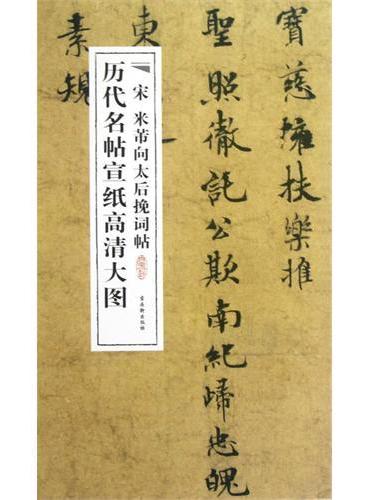 寶慈擁扶樂推
聖照徹託公欺南紀歸忠魄
東
素規
宋 米芾向太后挽词帖
历代名帖宣纸高清大图
古吴轩出版社